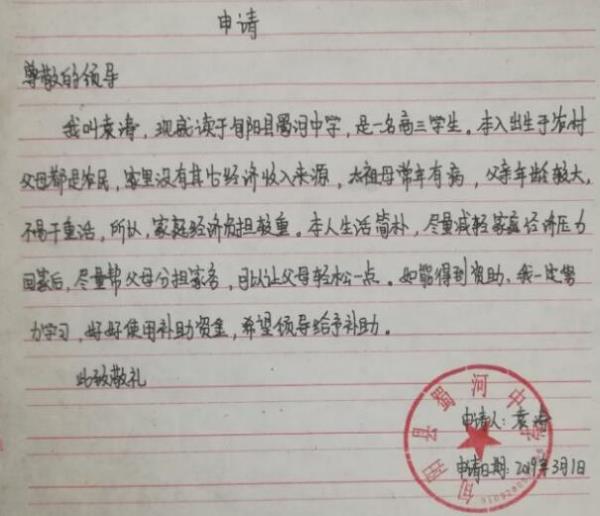 申请
尊敬的领导
我叫袁涛，现就读于旬阳县蜀河中学，是一名高三学生。本人出生于农村
父母都是农民，家里没有其它经济收入来源，太祖母常年有病，父亲年龄较大，
不易干重活，所以，家庭经济负担较重。本人生活简朴，尽量减轻家庭经济压力
回家后，尽量帮父母分担家务，可以让父母轻松一点。如能得到资助、我一定努
力学习，好好使用补助资金，希望领导给予补助。
此致敬礼
旬阳县蜀河中学
申请人：袁涛
申请日期：2019年3月1日